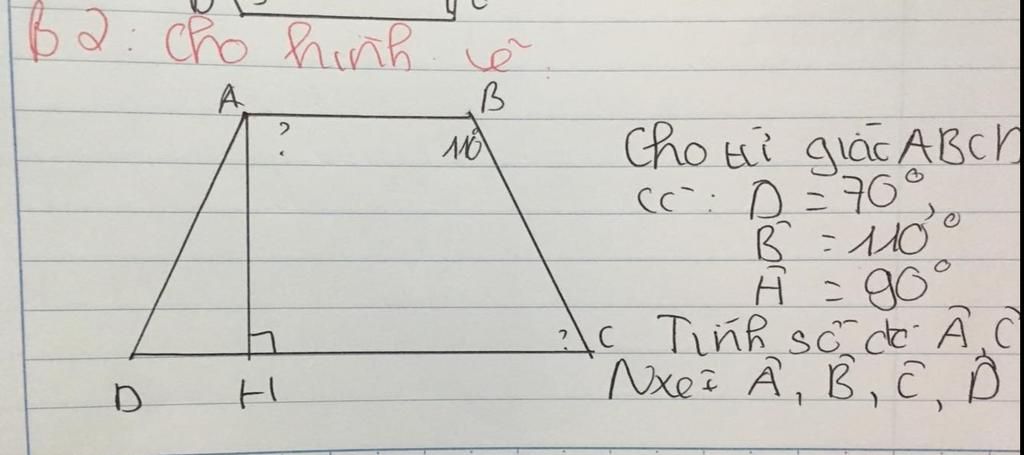 B2: Cho hình vẽ.
A
B
?
110°
Cho tứ giác ABCD
có: D = 70°,
B̂ = 110°
Ĥ = 90°
? C
Tính số đo Â, Ĉ
D
H
Nxét Â, B̂, Ĉ, D̂